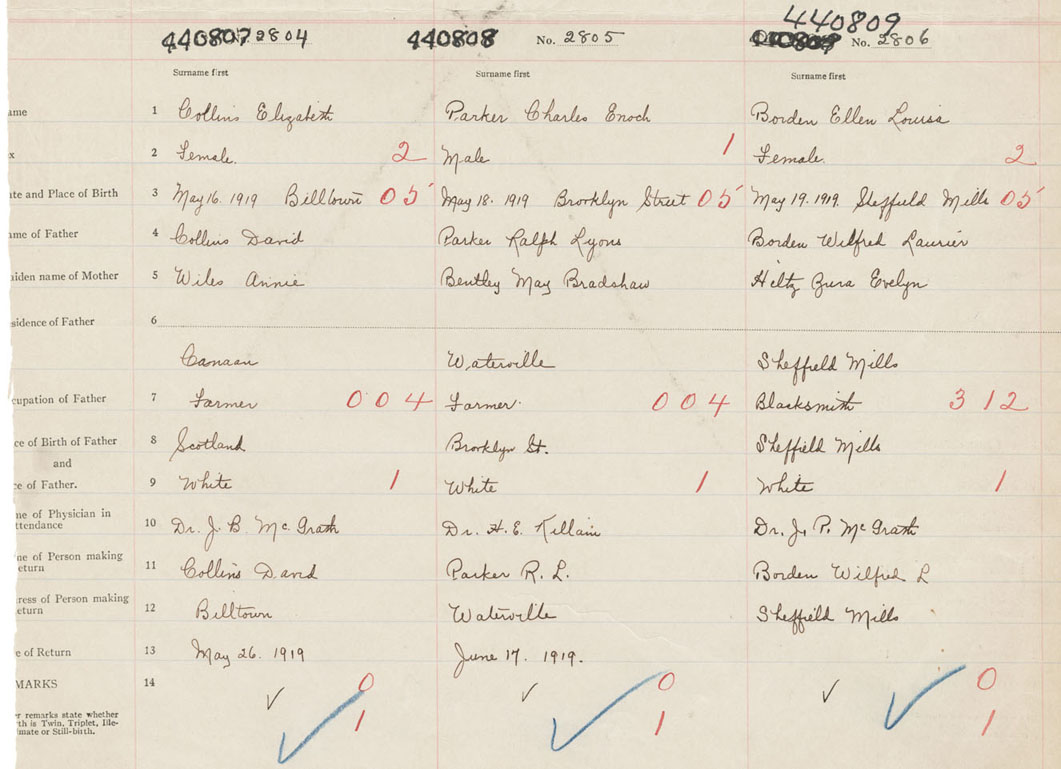 440807 2804 440808 No. 2805 440809 No. 2806
Surname first Surname first Surname first
ame 1 Collins Elizabeth Parker Charles Enoch Borden Ellen Louisa
x 2 Female. 2 Male 1 Female. 2
ate and Place of Birth 3 May 16. 1919 Billtown 05 May 18. 1919 Brooklyn Street 05 May 19. 1919. Sheffield Mills 05
me of Father 4 Collins David Parker Ralph Lyons Borden Wilfred Laurier
aiden name of Mother 5 Wiles Annie Bentley May Bradshaw Hiltz Zura Evelyn
sidence of Father 6
Canaan Waterville Sheffield Mills
cupation of Father 7 Farmer 004 Farmer. 004 Blacksmith 312
ce of Birth of Father 8 Scotland Brooklyn St. Sheffield Mills
and
ce of Father. 9 White 1 White 1 White 1
me of Physician in
ttendance 10 Dr. J. B. McGrath Dr. H. E. Killam Dr. J. P. McGrath
me of Person making
eturn 11 Collins David Parker R. L. Borden Wilfred L
ress of Person making
eturn 12 Billtown Waterville Sheffield Mills
e of Return 13 May 26. 1919 June 17. 1919.
MARKS 14 0 0 0
r remarks state whether
th is Twin, Triplet, Ille- 1 1 1
imate or Still-birth.